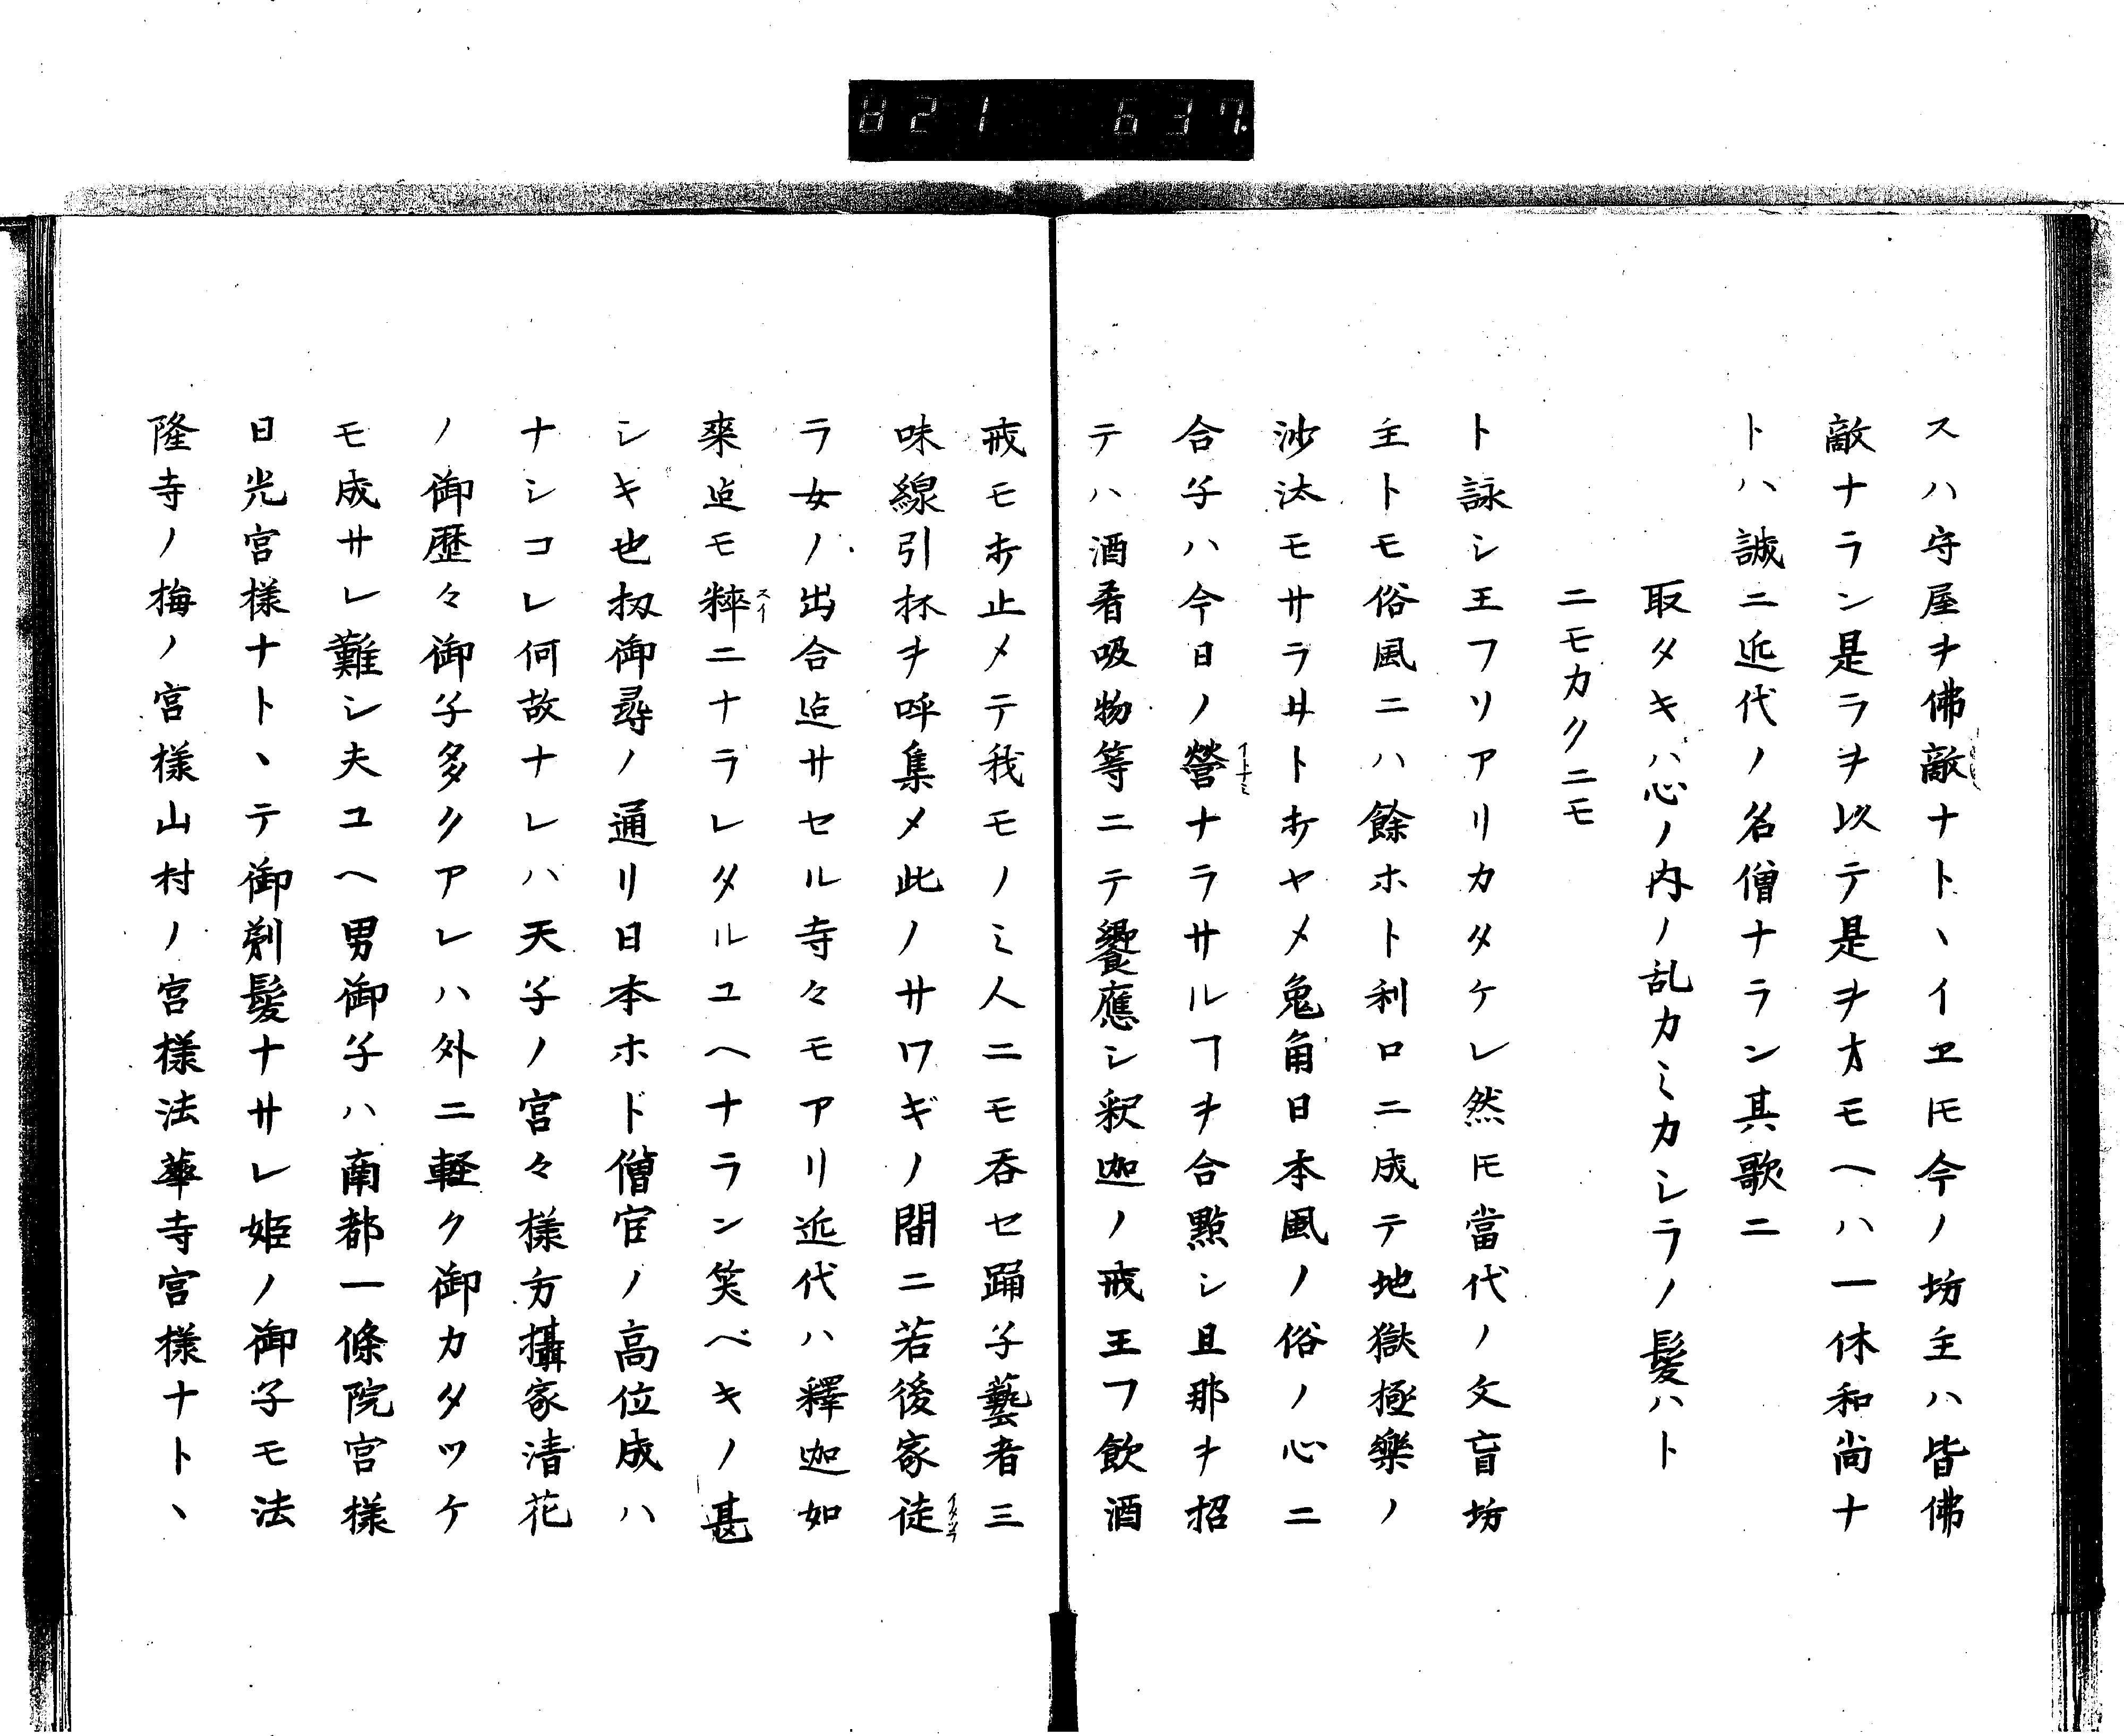 821 637.
スハ守屋ヲ佛敵ナト、イヱ𪜈今ノ坊主ハ皆佛
敵ナラン是ラヲ以テ是ヲオモヘハ一休和尚ナ
トハ誠ニ近代ノ名僧ナラン其歌ニ
取タキハ心ノ内ノ乱カミカシラノ髪ハト
ニモカクニモ
ト詠シ王フソアリカタケレ然𪜈當代ノ文盲坊
主トモ俗風ニハ餘ホト利口ニ成テ地獄極樂ノ
沙汰モサラヰトホヤメ兎角日本風ノ俗ノ心ニ
合子ハ今日ノ營イトナミナラサルヿヲ合點シ且那ヲ招
テハ酒肴吸物等ニテ饗應シ釈迦ノ戒王フ飲酒
戒モホ止メテ我モノミ人ニモ呑セ踊子藝者三
味線引抔ヲ呼集メ此ノサワギノ間ニ若後家徒イタツラ
ラ女ノ出合迠サセル寺々モアリ近代ハ釋迦如
來迠モ粹スイニナラレタルユヘナラン笑ベキノ甚
シキ也扨御尋ノ通リ日本ホド僧官ノ高位成ハ
ナシコレ何故ナレハ天子ノ宮々樣方攝家清花
ノ御歴々御子多クアレハ外ニ軽ク御カタツケ
モ成サレ難シ夫ユヘ男御子ハ南都一條院宮樣
日光宮樣ナト、テ御剃髪ナサレ姫ノ御子モ法
隆寺ノ梅ノ宮樣山村ノ宮樣法華寺宮樣ナト、